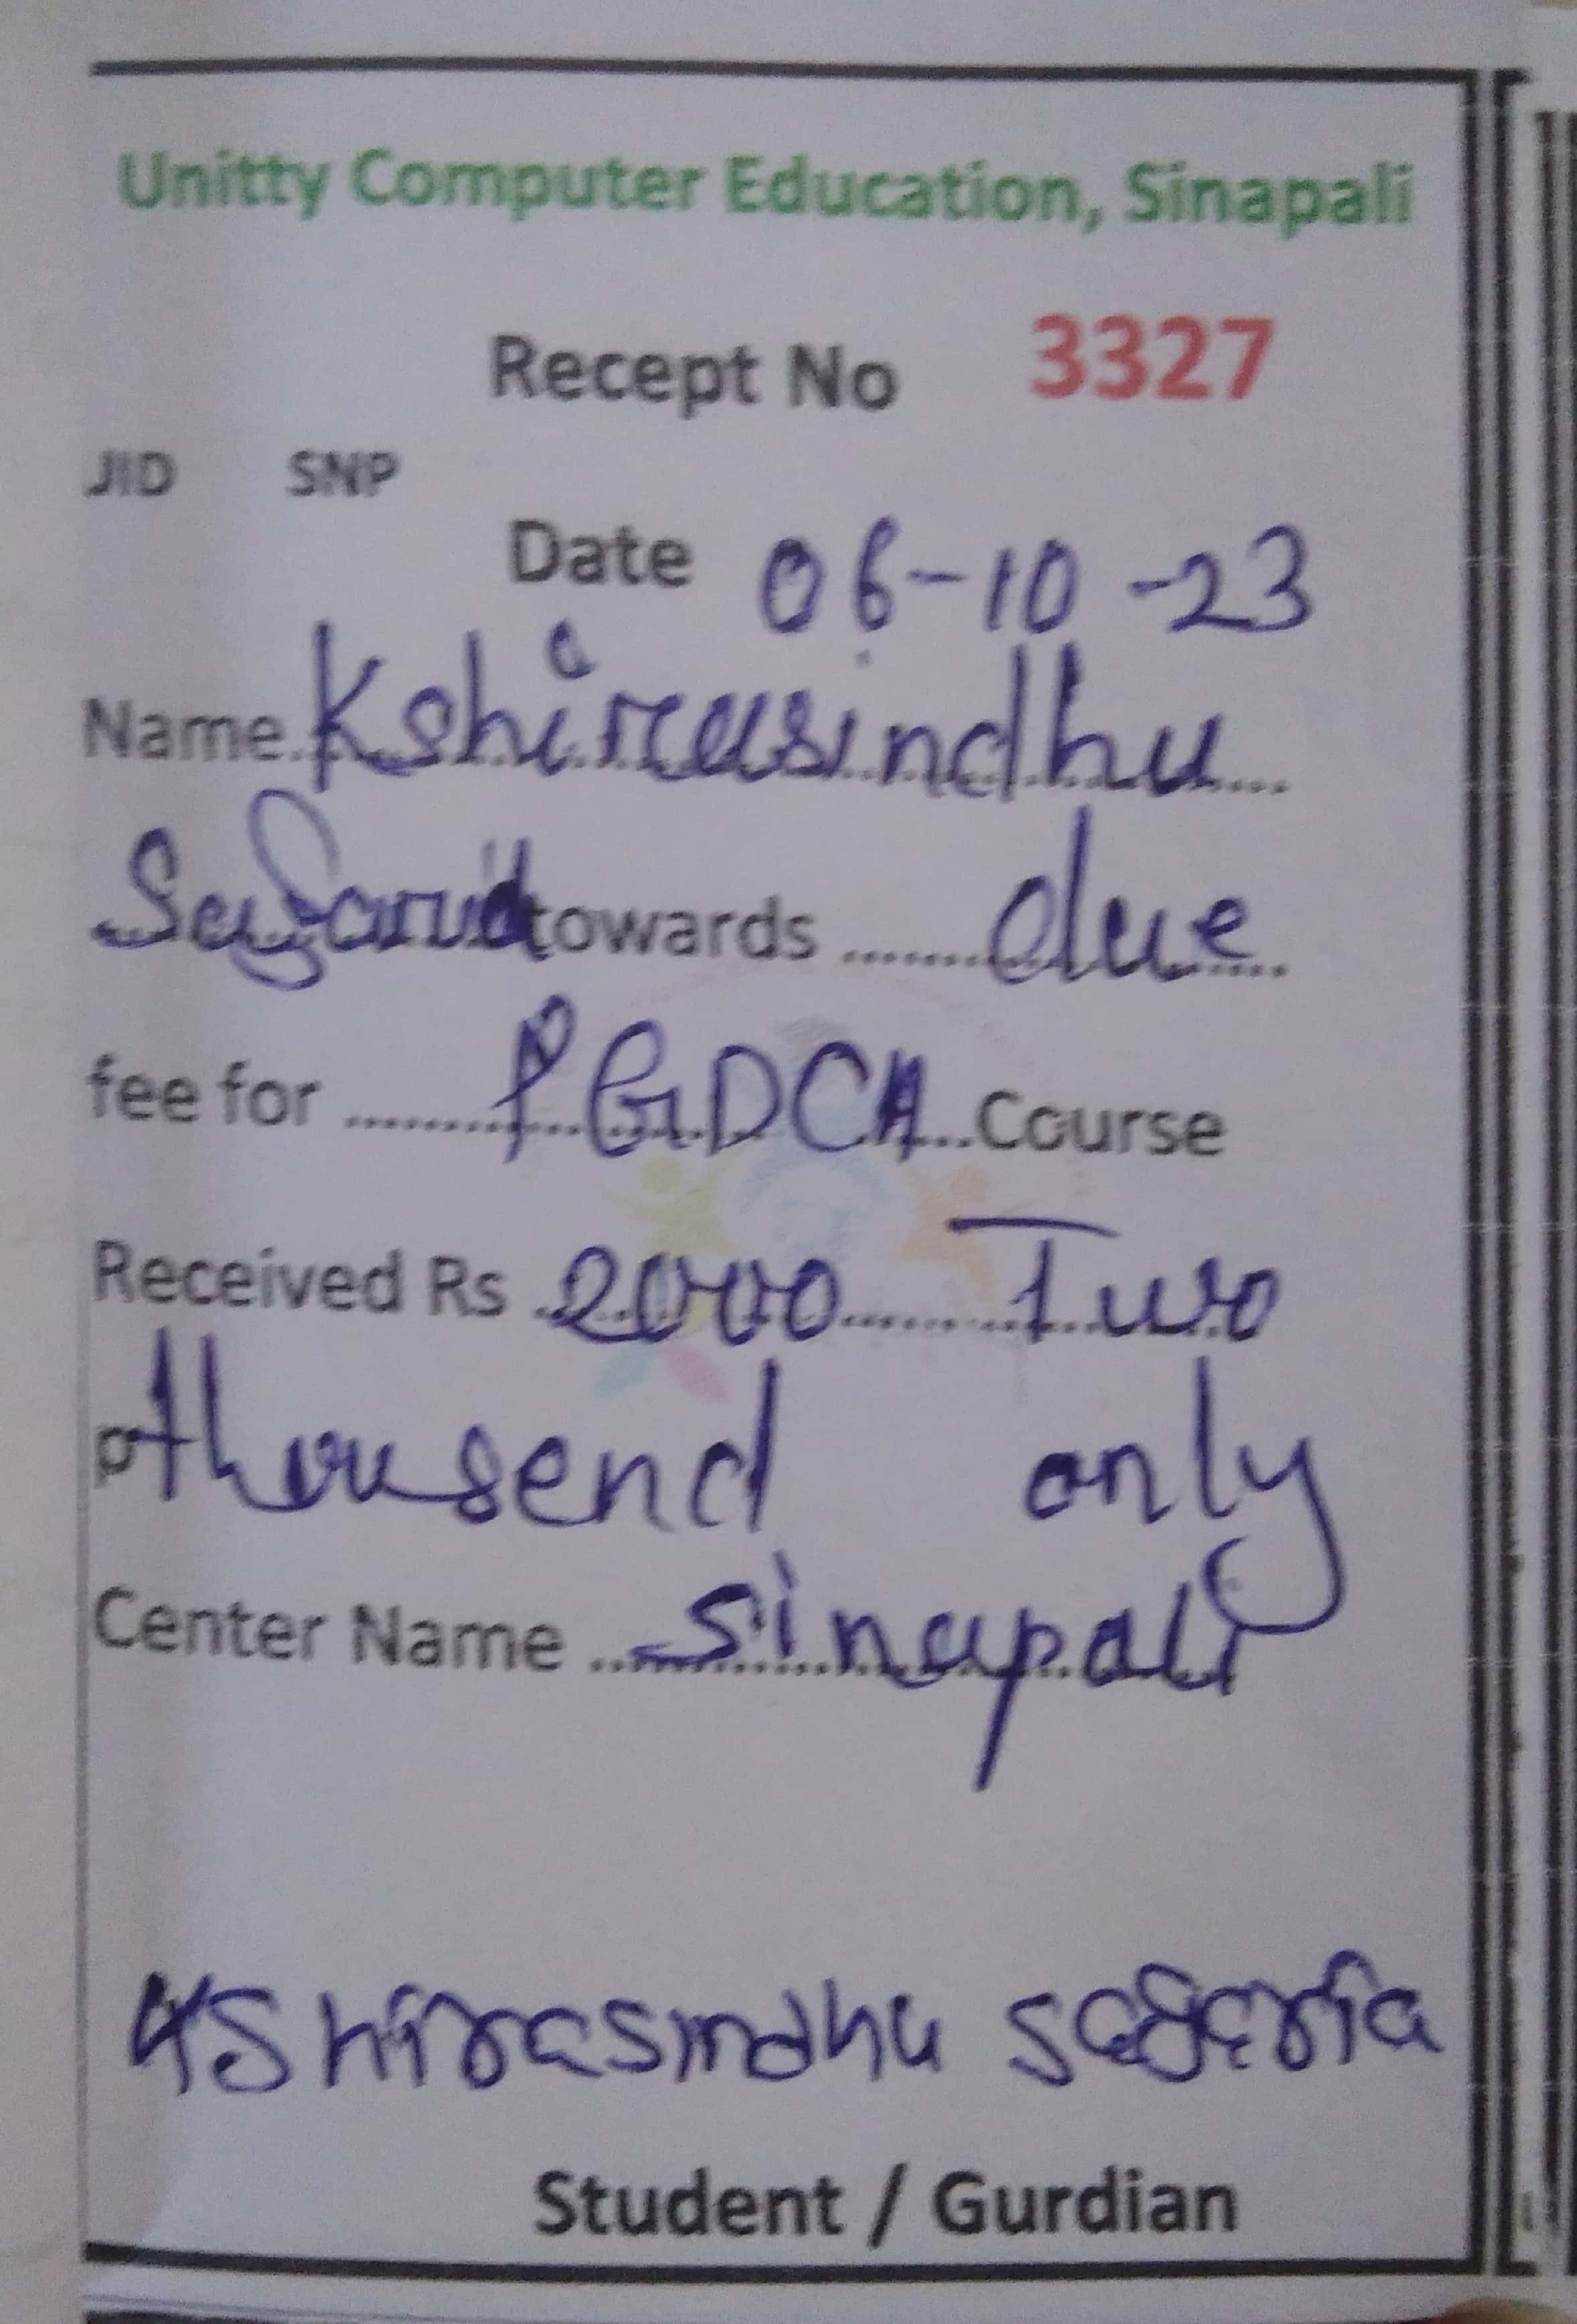 Unitty Computer Education, Sinapali
Recept No 3327
JID SNP
Date 06-10-23
Name Kshirasindhu
towards due
fee for PGDCA Course
Received Rs 2000 Two
thousend only
Center Name Sinapali
Kshirasindhu
Student / Gurdian